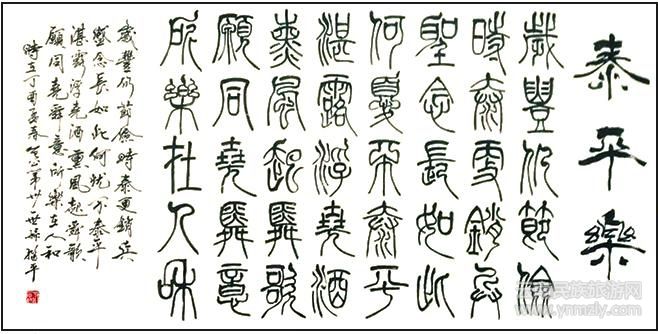 泰平樂
歲豐仍節儉
時泰更銷兵
聖念長如此
何憂不泰平
湛露浮堯酒
熏風起舜歌
願同堯舜意
所樂在人和
歲豐仍節儉時泰更銷兵
聖念長如此何忧不泰平
湛露浮堯酒熏風起舜歌
願同堯舜意所樂在人和
時在丁酉孟春
云南民族旅游网
www.ynmzly.com